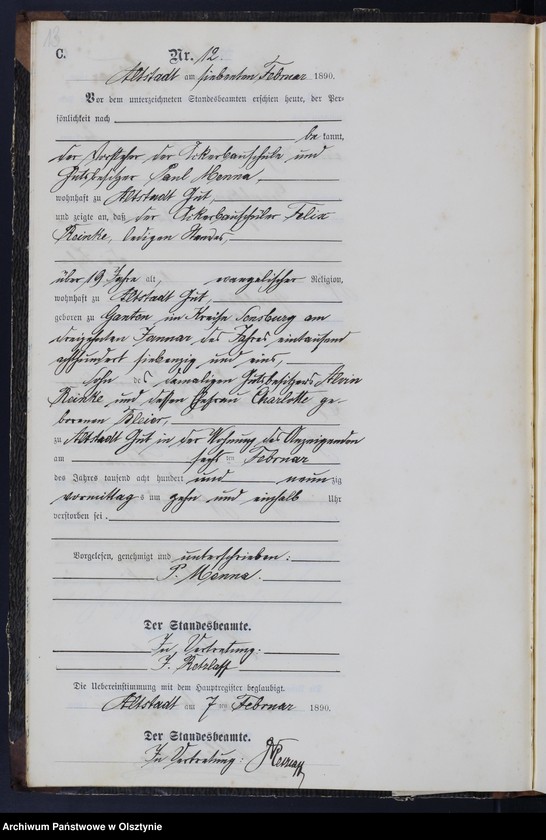 13
C.
Nr. 12.
Altstadt am siebenten Februar 1890.
Vor dem unterzeichneten Standesbeamten erschien heute, der Per-
sönlichkeit nach
be kannt,
der Vorsteher der Ackerbauschule und
Gutsbesitzer Paul Menna,
wohnhaft zu Altstadt Gut,
und zeigte an, daß der Ackerbauschüler Felix
Reinke, ledigen Standes,
über 19 Jahre alt, evangelischer Religion,
wohnhaft zu Altstadt Gut,
geboren zu Ganten im Kreise Sensburg am
dreizehnten Januar des Jahres eintausend
achthundert siebenzig und eins,
Sohn des damaligen Gutsbesitzers Alvin
Reinke und dessen Ehefrau Charlotte ge-
borenen Bleier,
zu Altstadt Gut in der Wohnung des Anzeigenden
am sechs ten Februar
des Jahres tausend acht hundert und neun zig
vormittag s um zehn und einhalb Uhr
verstorben sei.
Vorgelesen, genehmigt und unterschrieben:
P. Menna.
Der Standesbeamte.
In Vertretung:
Retzlaff
Die Uebereinstimmung mit dem Hauptregister beglaubigt.
Altstadt am 7ten Februar 1890.
Der Standesbeamte.
In Vertretung: Retzlaff
Archiwum Państwowe w Olsztynie